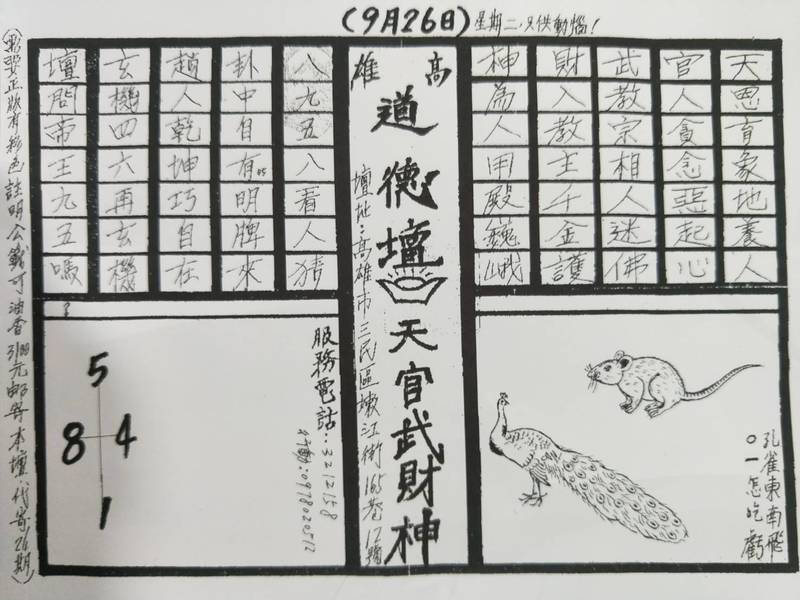 (9月26日) 星期二,只供動惱!
天恩育象地養人
官人貪念惡起心
武教宗相人迷佛
財入教主千金護
神為人用殿巍峨
高雄
道德壇 天官武財神
壇地:高雄市三民區嫩江街165巷12號
八九五八看人猜
卦中自有明牌來
趙人乾坤巧自在
玄機四六再玄機
壇問帝王九五嗎
?
孔雀東南飛
○一怎吃虧
服務電話:3212158
行動:0978020512
5
8 4
1
要正版有彩色註明公錢可油香元郵寄本壇代寄26期)